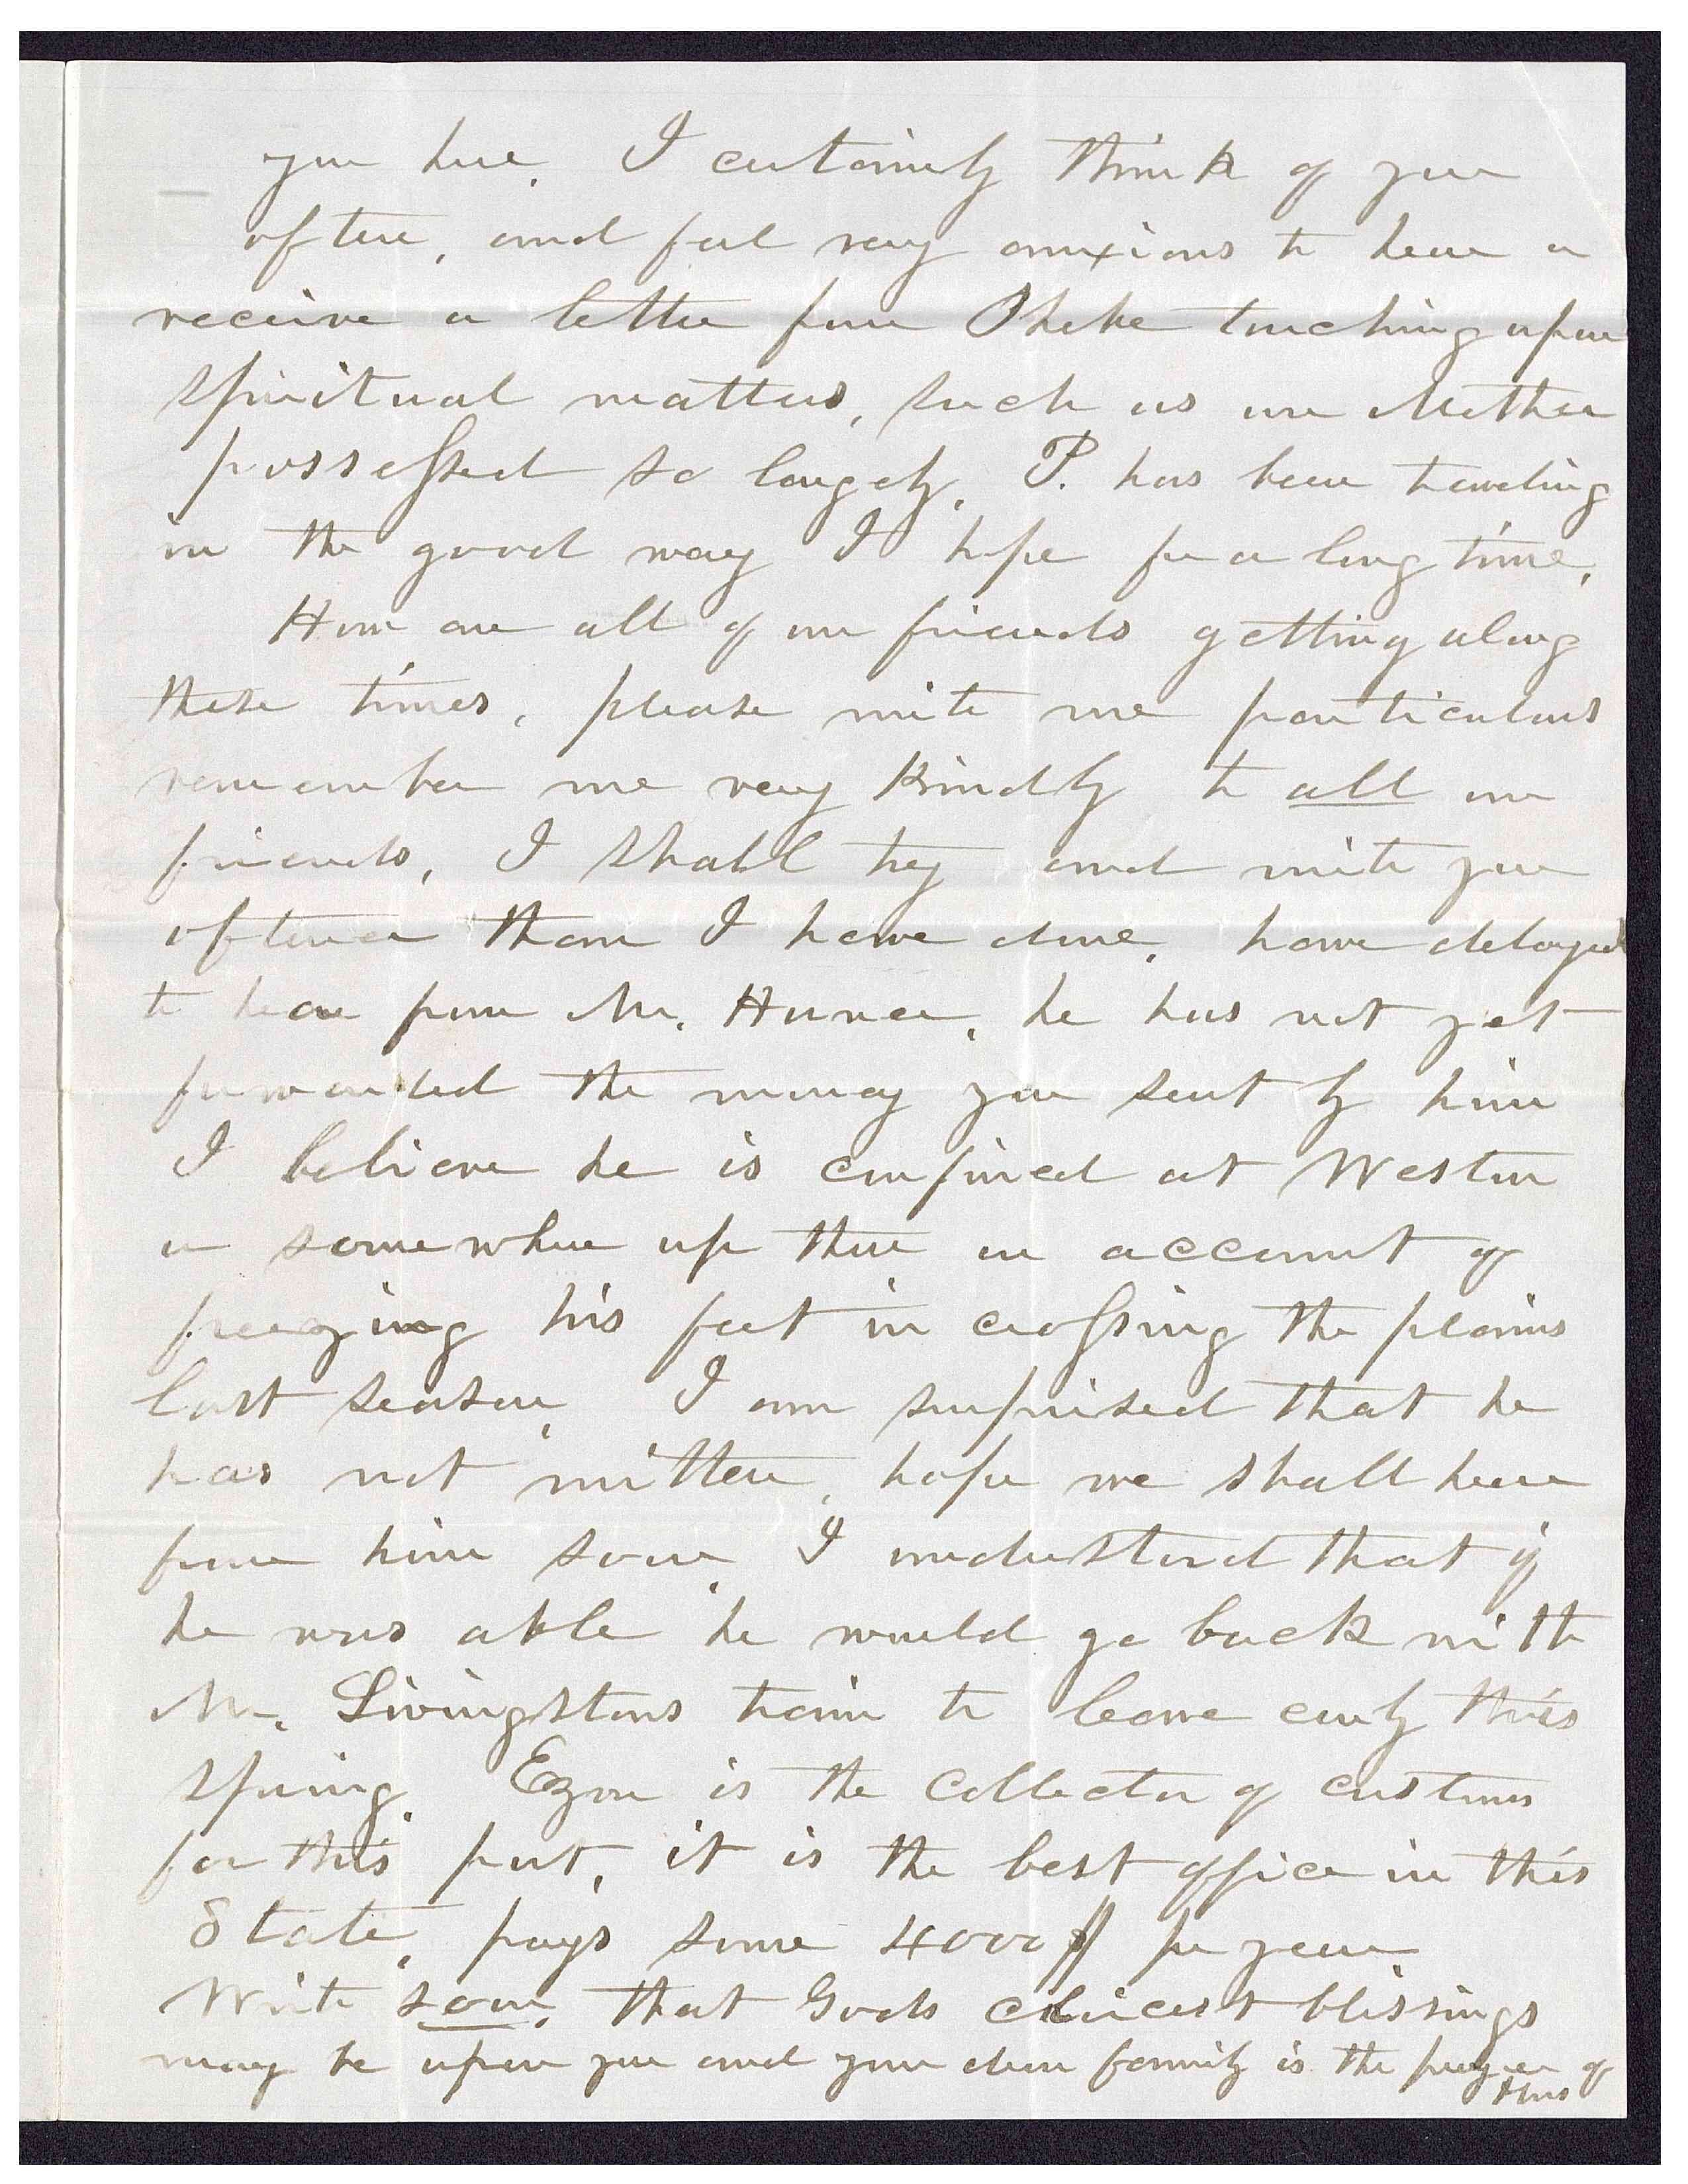 you here. I certainly think of you
often, and feel very anxious to hear or
receive a letter from Phebe touching upon
spiritual matters, such as our Mother
possessed so largely, P. has been traveling
in the good way I hope for a long time.
How are all of our friends getting along
these times, please write me particulars
remember me very kindly to all our
friends, I shall try and write you
oftener than I have done, have delayed
to hear from Mr. he has not yet
forwarded the money you sent by him
I believe he is confined at Weston
or somewhere up there on account of
freezing his feet in crossing the plains
last season, I am surprised that he
has not written, hope we shall hear
from him soon, I understand that if
he was able he would go back with
Mr. Livingstons train to leave early this
spring. Ezra is the Collector of customs
for this port, it is the best office in this
State, pays some 4000$ per year
Write soon, that Gods choicest blissings
may be upon you and your dear family is the prayer of
thus